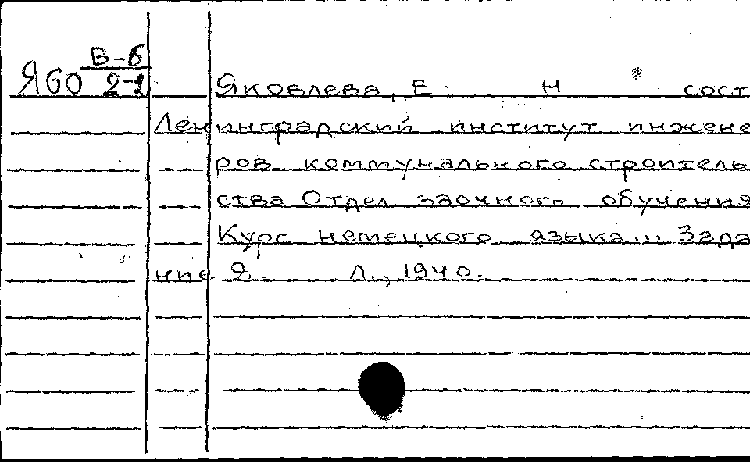 В-6
Я60 2-2
Яковлева, Е Н сост
Ленинградский институт инжене
ров коммунального строитель
ства Отдел заочного обучения
Курс немецкого языка... Зада
ние 2. Л., 1940.